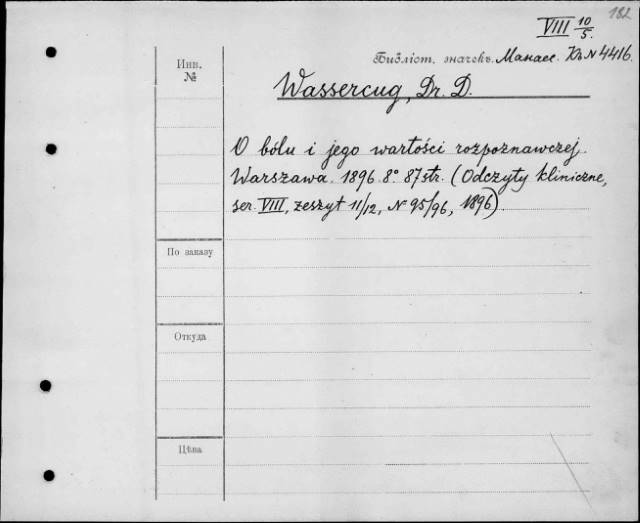 182
VIII 10/5.
Инв.
№
Библіот. значекъ. Манасс. Къ N 4416.
Wassercug, Dr. D.
O bólu i jego wartości rozpoznawczej.
Warszawa. 1896. 8° 87 str. (Odczyty kliniczne,
ser. VIII, zeszyt 11/12, N 95/96, 1896)
По заказу
Откуда
Цѣна